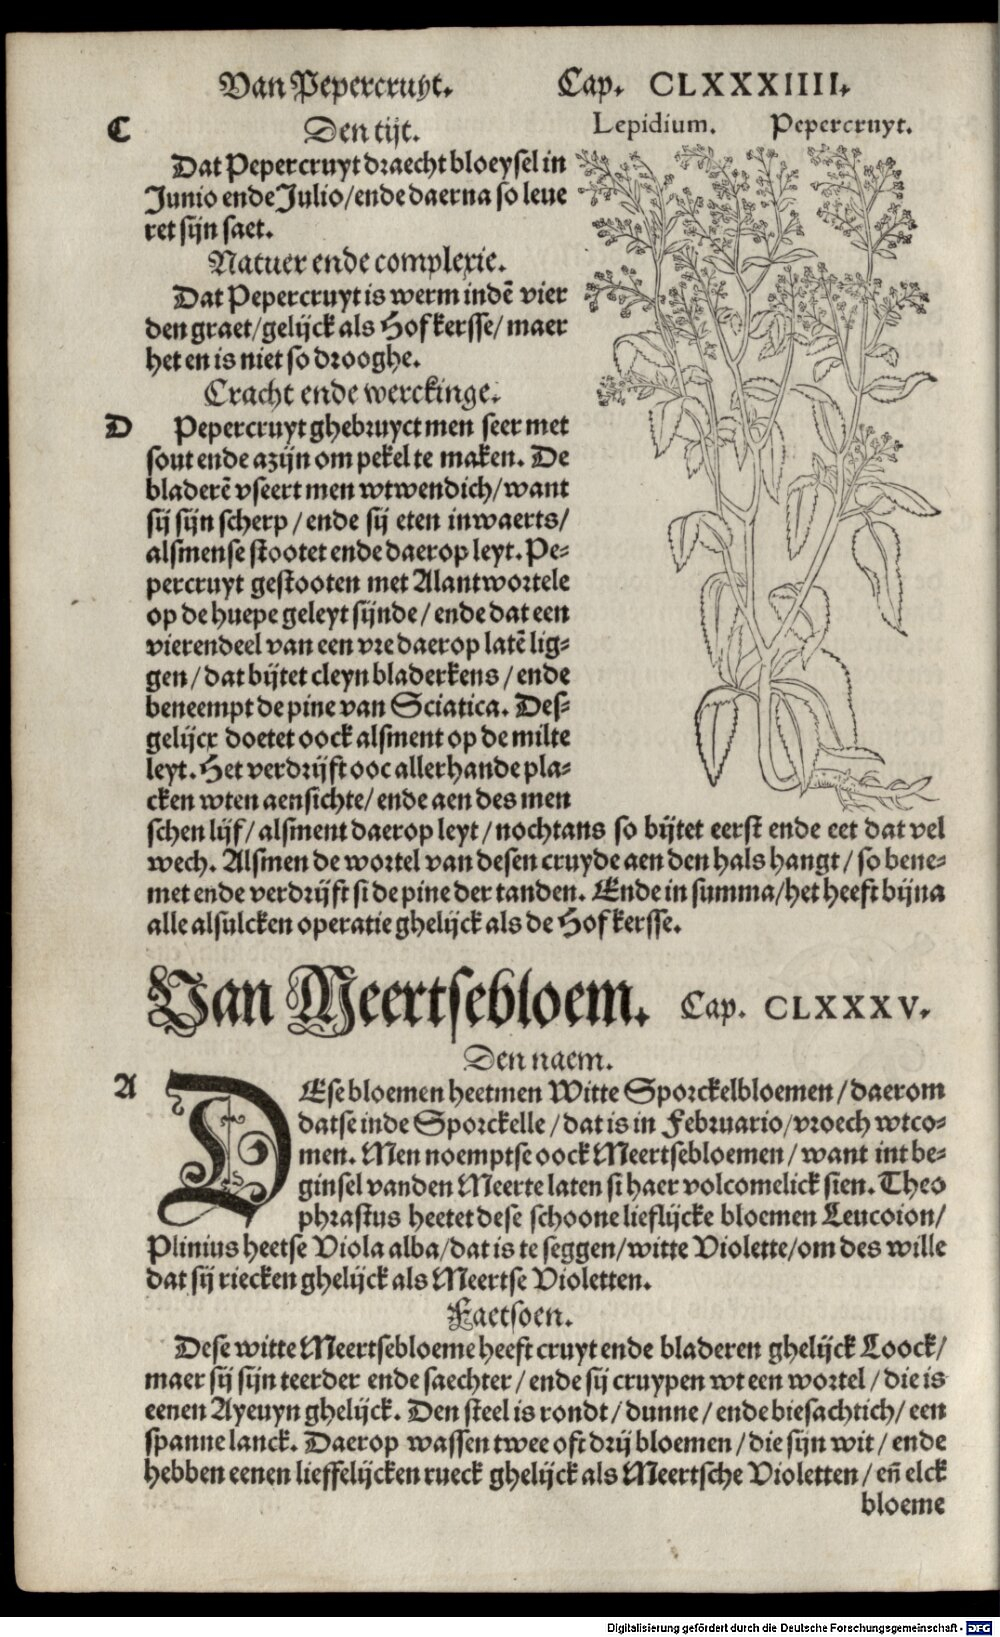 Van Pepercruyt. Cap. CLXXXIIII.
C Den tijt.
Lepidium. Pepercruyt.
Dat Pepercruyt draecht bloeysel in
Junio ende Julio/ende daerna so leue
ret sijn saet.
Natuer ende complexie.
Dat Pepercruyt is werm indē vier
den graet/gelijck als Hof kersse/maer
het en is niet so drooghe.
Cracht ende werckinge.
D Pepercruyt ghebruyct men seer met
sout ende azijn om pekel te maken. De
bladerē vseert men wtwendich/want
sij sijn scherp/ende sij eten inwaerts/
alsmense stootet ende daer op leyt. Pe-
percruyt gestooten met Alantwortele
op de huepe geleyt sijnde/ende dat een
vierendeel van een vre daer op latē lig-
gen/dat bijtet cleyn bladerkens/ende
beneempt de pine van Sciatica. Des-
gelijcx doetet oock alsment op de milte
leyt. Het verdrijft ooc allerhande pla-
cken wten aensichte/ende aen des men
schen lijf/alsment daer op leyt/nochtans so bijtet eerst ende eet dat vel
wech. Alsmen de wortel van desen cruyde aen den hals hangt/so bene-
met ende verdrijft si de pine der tanden. Ende in summa/het heeft bijna
alle alsulcken operatie ghelijck als de Hof kersse.
Van Meertsebloem. Cap. CLXXXV.
Den naem.
A DEse bloemen heetmen Witte Sporckelbloemen/daerom
datse inde Sporckelle/dat is in Februario/vroech wtco-
men. Men noemptse oock Meertsebloemen/want int be-
ginsel vanden Meerte laten si haer volcomelick sien. Theo
phrastus heetet dese schoone lieflijcke bloemen Leucoion/
Plinius heetse Viola alba/dat is te seggen/witte Violette/om des wille
dat sij riecken ghelijck als Meertse Violetten.
Faetsoen.
Dese witte Meertsebloeme heeft cruyt ende bladeren ghelijck Loock/
maer sij sijn teerder ende saechter/ende sij cruypen wt een wortel/die is
eenen Ayeuyn ghelijck. Den steel is rondt/dunne/ende biesachtich/een
spanne lanck. Daer op wassen twee oft drij bloemen/die sijn wit/ende
hebben eenen lieffelijcken rueck ghelijck als Meertsche Violetten/en̄ elck
bloeme
Digitalisierung gefördert durch die Deutsche Forschungsgemeinschaft - DFG